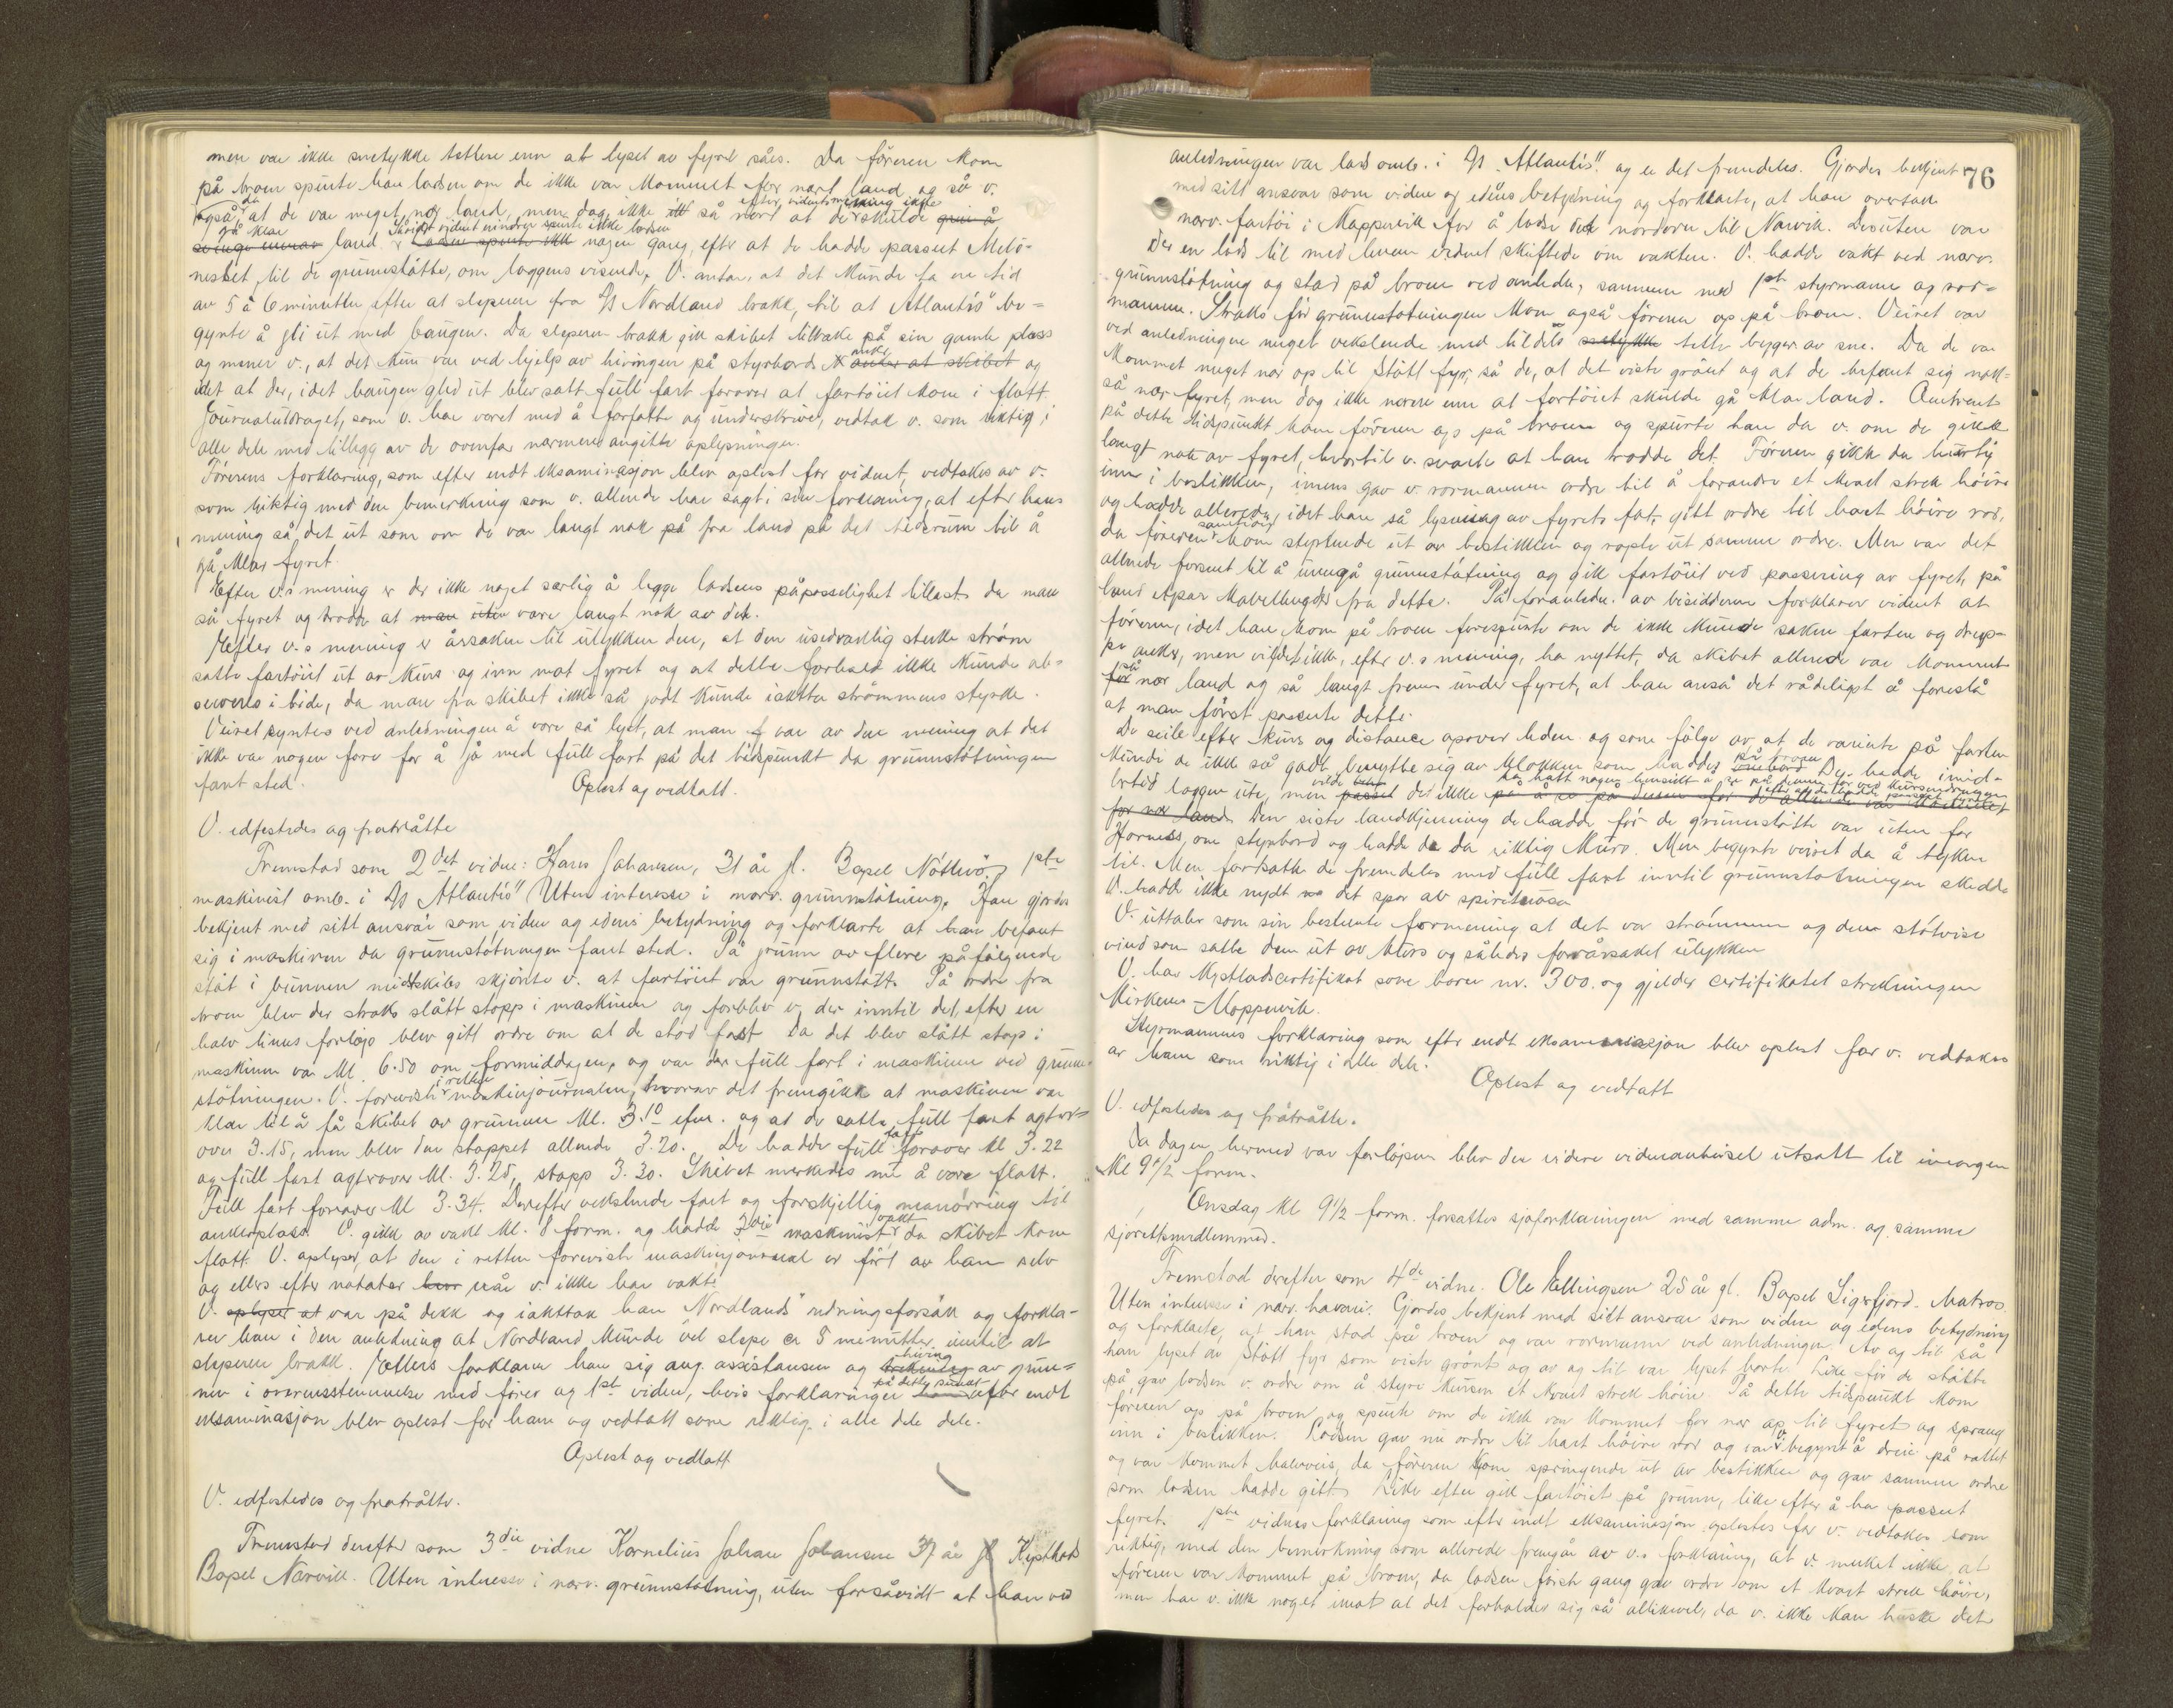 men var ikke snetykke tettere enn at lyset av fyret såes. Da föreren kom
på broen spurte han losden om de ikke var kommet for nært land, og så v.
også da at de var meget nær land, men dog ikke så nært at der efter vidnets mening ikke skulde
gå klar land. Såvidt vidnet erindrer spurte ikke losden nogen gang, efter at de hadde passert Melö-
nesset, til de grunnstötte, om loggens visende. V. antar, at det kunde ta en tid
av 5 à 6 minutter efter at sleperen fra D/s Nordland brakk, til at "Atlantis" be-
gynte å gli ut med baugen. Da sleperen brakk gikk skibet tilbake på sin gamle plass
og mener v., at det kun var ved hjelp av hivingen på styrbords anker og
idet at der, idet baugen gled ut blev satt full fart forover at fartöiet kom i flott.
Journalutdraget, som v. har været med å forfatte og underskrive, vedtok v. som riktig i
alle dele med tillegg av de ovenfor nærmere angitte oplysninger.
Förerens forklaring, som efter endt eksaminasjon blev oplest for vidnet, vedtokes av v.
som riktig med den bemerkning som v. allerede har sagt i sin forklaring, at efter hans
mening så det ut som om de var langt nok på fra land på det tidsrum til å
gå klar fyret.
Efter v.s mening er der ikke noget særlig å legge losdens påpasselighet tillast da man
så fyret og trodde at være langt nok av det.
Efter v.s mening er årsaken til ulykken den, at den usedvanlig sterke ström
satte fartöiet ut av kurs og inn mot fyret og at dette forhold ikke kunde ob-
serveres i tide, da man fra skibet ikke så godt kunde iaktta strömmens styrke.
Veiret syntes ved anledningen å være så lyst, at man var av den mening at det
ikke var nogen fare for å gå med full fart på det tidspunkt da grunnstötningen
fant sted.
Oplest og vedtatt.
V. edfestedes og fratrådte
Fremstod som 2det vidne: Hans Johansen, 31 år gl. Bopel Nötterö, 1ste
maskinist omb. i D/s "Atlantis" Uten interesse i nærv. grunnstötning. Han gjordes
bekjent med sitt ansvar som vidne og edens betydning og forklarte at han befant
sig i maskinen da grunnstötningen fant sted. På grunn av flere påfölgende
stöt i bunnen midtskibs skjönte v. at fartöiet var grunnstött. På ordre fra
broen blev der straks slått stopp i maskinen og forblev v. der inntil det efter en
halv times forlöp blev gitt ordre om at de stod fast. Da det blev slått stop i
maskinen var kl. 6.50 om formiddagen, og var der full fart i maskinen ved grunn-
stötningen. V. foreviste i retten maskinjournalen, hvorav det fremgikk at maskinen var
klar til å få skibet av grunnen kl. 3.10 efm. og at de satte full fart agter-
over 3.15, men blev den stoppet allerede 3.20. De hadde full fart forover kl 3.22
og full fart agterover kl. 3.25, stopp 3.30. Skibet merkedes nu å være flott.
Full fart forover kl 3.34. Derefter vekslende fart og forskjellig manövring til
ankerplass. V. gikk av vakt kl. 8 form. og hadde 3die maskinist vakt da skibet kom
flott. V. oplyser, at den i retten foreviste maskinjournal er fört av ham selv
og ellers efter notater når v. ikke har vakt.
V. var på dekk og iakttok han "Nordlands" redningsforsök og forkla-
rer han i den anledning at Nordland kunde vel slepe ca 5 minutter inntil at
sleperen brakk. Ellers forklarer han sig ang. assistansen og hiving av grun-
nen i overensstemmelse med förer og 1ste vidne, hvis forklaringer på dette punkt efter endt
eksaminasjon blev oplest for ham og vedtatt som riktig i alle dele.
Oplest og vedtatt
V. edfestedes og fratrådte.
Fremstod derefter som 3die vidne Kornelius Johan Johansen 37 år gl Kystlods
Bopel Narvik. Uten interesse i nærv. grunnstötning, uten forsåvidt at han ved
76
anledningen var lods omb. i D/s "Atlantis" og er det fremdeles. Gjordes bekjent
med sitt ansvar som vidne og edens betydning og forklarte, at han overtok
nærv. fartöi i Koppervik for å lodse det nordover til Narvik. Desuten var
der en lods til med hvem vidnet skiftede om vakten. V. hadde vakt ved nærv.
grunnstötning og stod på broen ved anledn. sammen med 1ste styrmann og ror-
mannen. Straks för grunnstötningen kom også föreren op på broen. Veiret var
ved anledningen meget vekslende med tildels tette byger av sne. Da de var
kommet meget nær op til Stött fyr, så de, at det viste grönt og at de befant sig nok-
så nær fyret, men dog ikke nærmere enn at fartöiet skulde gå klar land. Omtrent
på dette tidspunkt kom föreren op på broen og spurte han da v. om de gikk
langt nok av fyret, hvortil v. svarte at han trodde det. Föreren gikk da hurtig
inn i bestikken, imens gav v. rormannen ordre til å forandre et kvart strek höire
og hadde allerede, idet han så lysning av fyrets fot, gitt ordre til hart höire ror,
da föreren samtidig kom styrtende ut av bestikken og ropte ut samme ordre. Men var det
allerede forsent til å unngå grunnstötning og gikk fartöiet ved passering av fyret, på
land et par kabellengder fra dette. På foranledn. av bisidderne forklarer vidnet at
föreren, idet han kom på broen forespurte om de ikke kunde sakne farten og drop-
pe anker, men vilde det ikke, efter v.s mening, ha nyttet, da skibet allerede var kommet
så nær land og så langt frem under fyret, at han anså det rådeligst å foreslå
at man först passerte dette.
De seilte efter kurs og distance opover leden og som fölge av, at de varierte på farten
kunde de ikke så godt benytte sig av klokken som haddes på broen. De hadde imid-
lertid loggen ute, men vilde det ikke ha hatt nogen hensikt å se på denne för ved kursendringen
Den siste landkjenning de hadde för de grunnstötte var uten for
Fornes, om styrbord og hadde de da riktig kurs. Men begynte veiret da å tykne
til. Men fortsatte de fremdeles med full fart inntil grunnstötningen skedde
V. hadde ikke nydt det spor av spirituosa
V. uttaler som sin bestemte formening at det var strömmen og den stötvise
vind som satte dem ut av kurs og således forårsaket ulykken
V. har kystlodscertifikat som bærer nr. 300. og gjelder certifikatet strekningen
Kirkenes – Koppervik.
Styrmannens forklaring som efter endt eksaminasjon blev oplest for v. vedtokes
av ham som riktig i alle dele.
Oplest og vedtatt
V. edfestedes og fratrådte.
Da dagen hermed var forlöpen blev den videre vidneavhörsel utsatt til imorgen
kl 9 1/2 form.
Onsdag kl 9 1/2 form. fortsattes sjöforklaringen med samme adm. og samme
sjörettsmedlemmer.
Fremstod derefter som 4de vidne. Ole Ellingsen 25 år gl. Bopel Ligsfjord. Matros.
Uten interesse i nærv. havari. Gjordes bekjent med sitt ansvar som vidne og edens betydning
og forklarte, at han stod på broen og var rormann ved anledningen. Av og til så
han lyset av Stött fyr som viste grönt og av og til var lyset borte. Like för de stötte
på gav losden v. ordre om å styre kursen et kvart strek höire. På dette tidspunkt kom
föreren op på broen og spurte om de ikke var kommet for nær op til fyret og sprang
inn i bestikken. Losden gav nu ordre til hart höire ror og var v. begynt å dreie på rattet
og var kommet halvveis, da föreren kom springende ut av bestikken og gav samme ordre
som losden hadde gitt. Like efter gikk fartöiet på grunn, like efter å ha passert
fyret. 1ste vidnes forklaring som efter endt eksaminasjon oplestes for v. vedtokes som
riktig, med den bemerkning som allerede fremgår av v.s forklaring, at v. merket ikke at
föreren var kommet på broen, da losden förste gang gav ordre om et kvart strek höire,
men har v. ikke noget imot at det forholder sig så allikevel, da v. ikke kan huske det